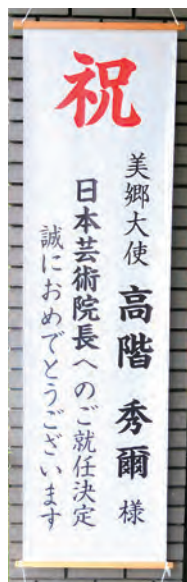 祝
美郷大使 高階 秀爾 様
日本芸術院長へのご就任決定
誠におめでとうございます